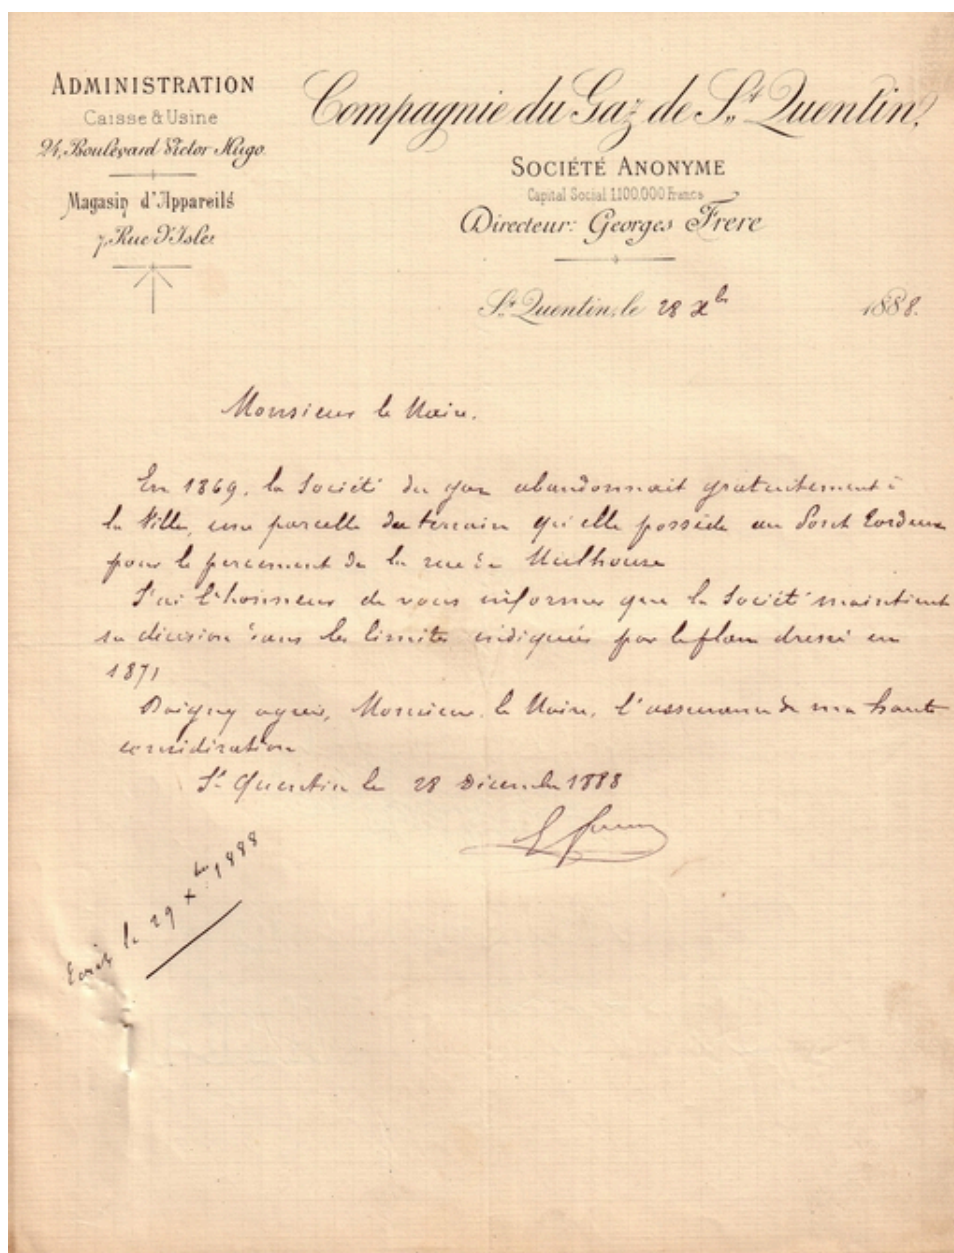 ADMINISTRATION
Caisse & Usine
24, Boulevard Victor Hugo
Magasin d'Appareils
7, Rue d'Isle
Compagnie du Gaz de St. Quentin,
SOCIÉTÉ ANONYME
Capital Social 1.100.000 Francs
Directeur: Georges Frere
St. Quentin, le 28 Xbre 1888.
Monsieur le Maire.
En 1869, la Société du gaz abandonnait gratuitement à
la Ville, une parcelle du terrain qu'elle possède au
pour le percement de la rue de Mulhouse
J'ai l'honneur de vous informer que la Société maintient
sa décision dans les limites indiquées par le plan dressé en
1871
Daignez agréer, Monsieur le Maire, l'assurance de ma haute
considération
St Quentin le 28 Décembre 1888
le 29 Xbre 1888